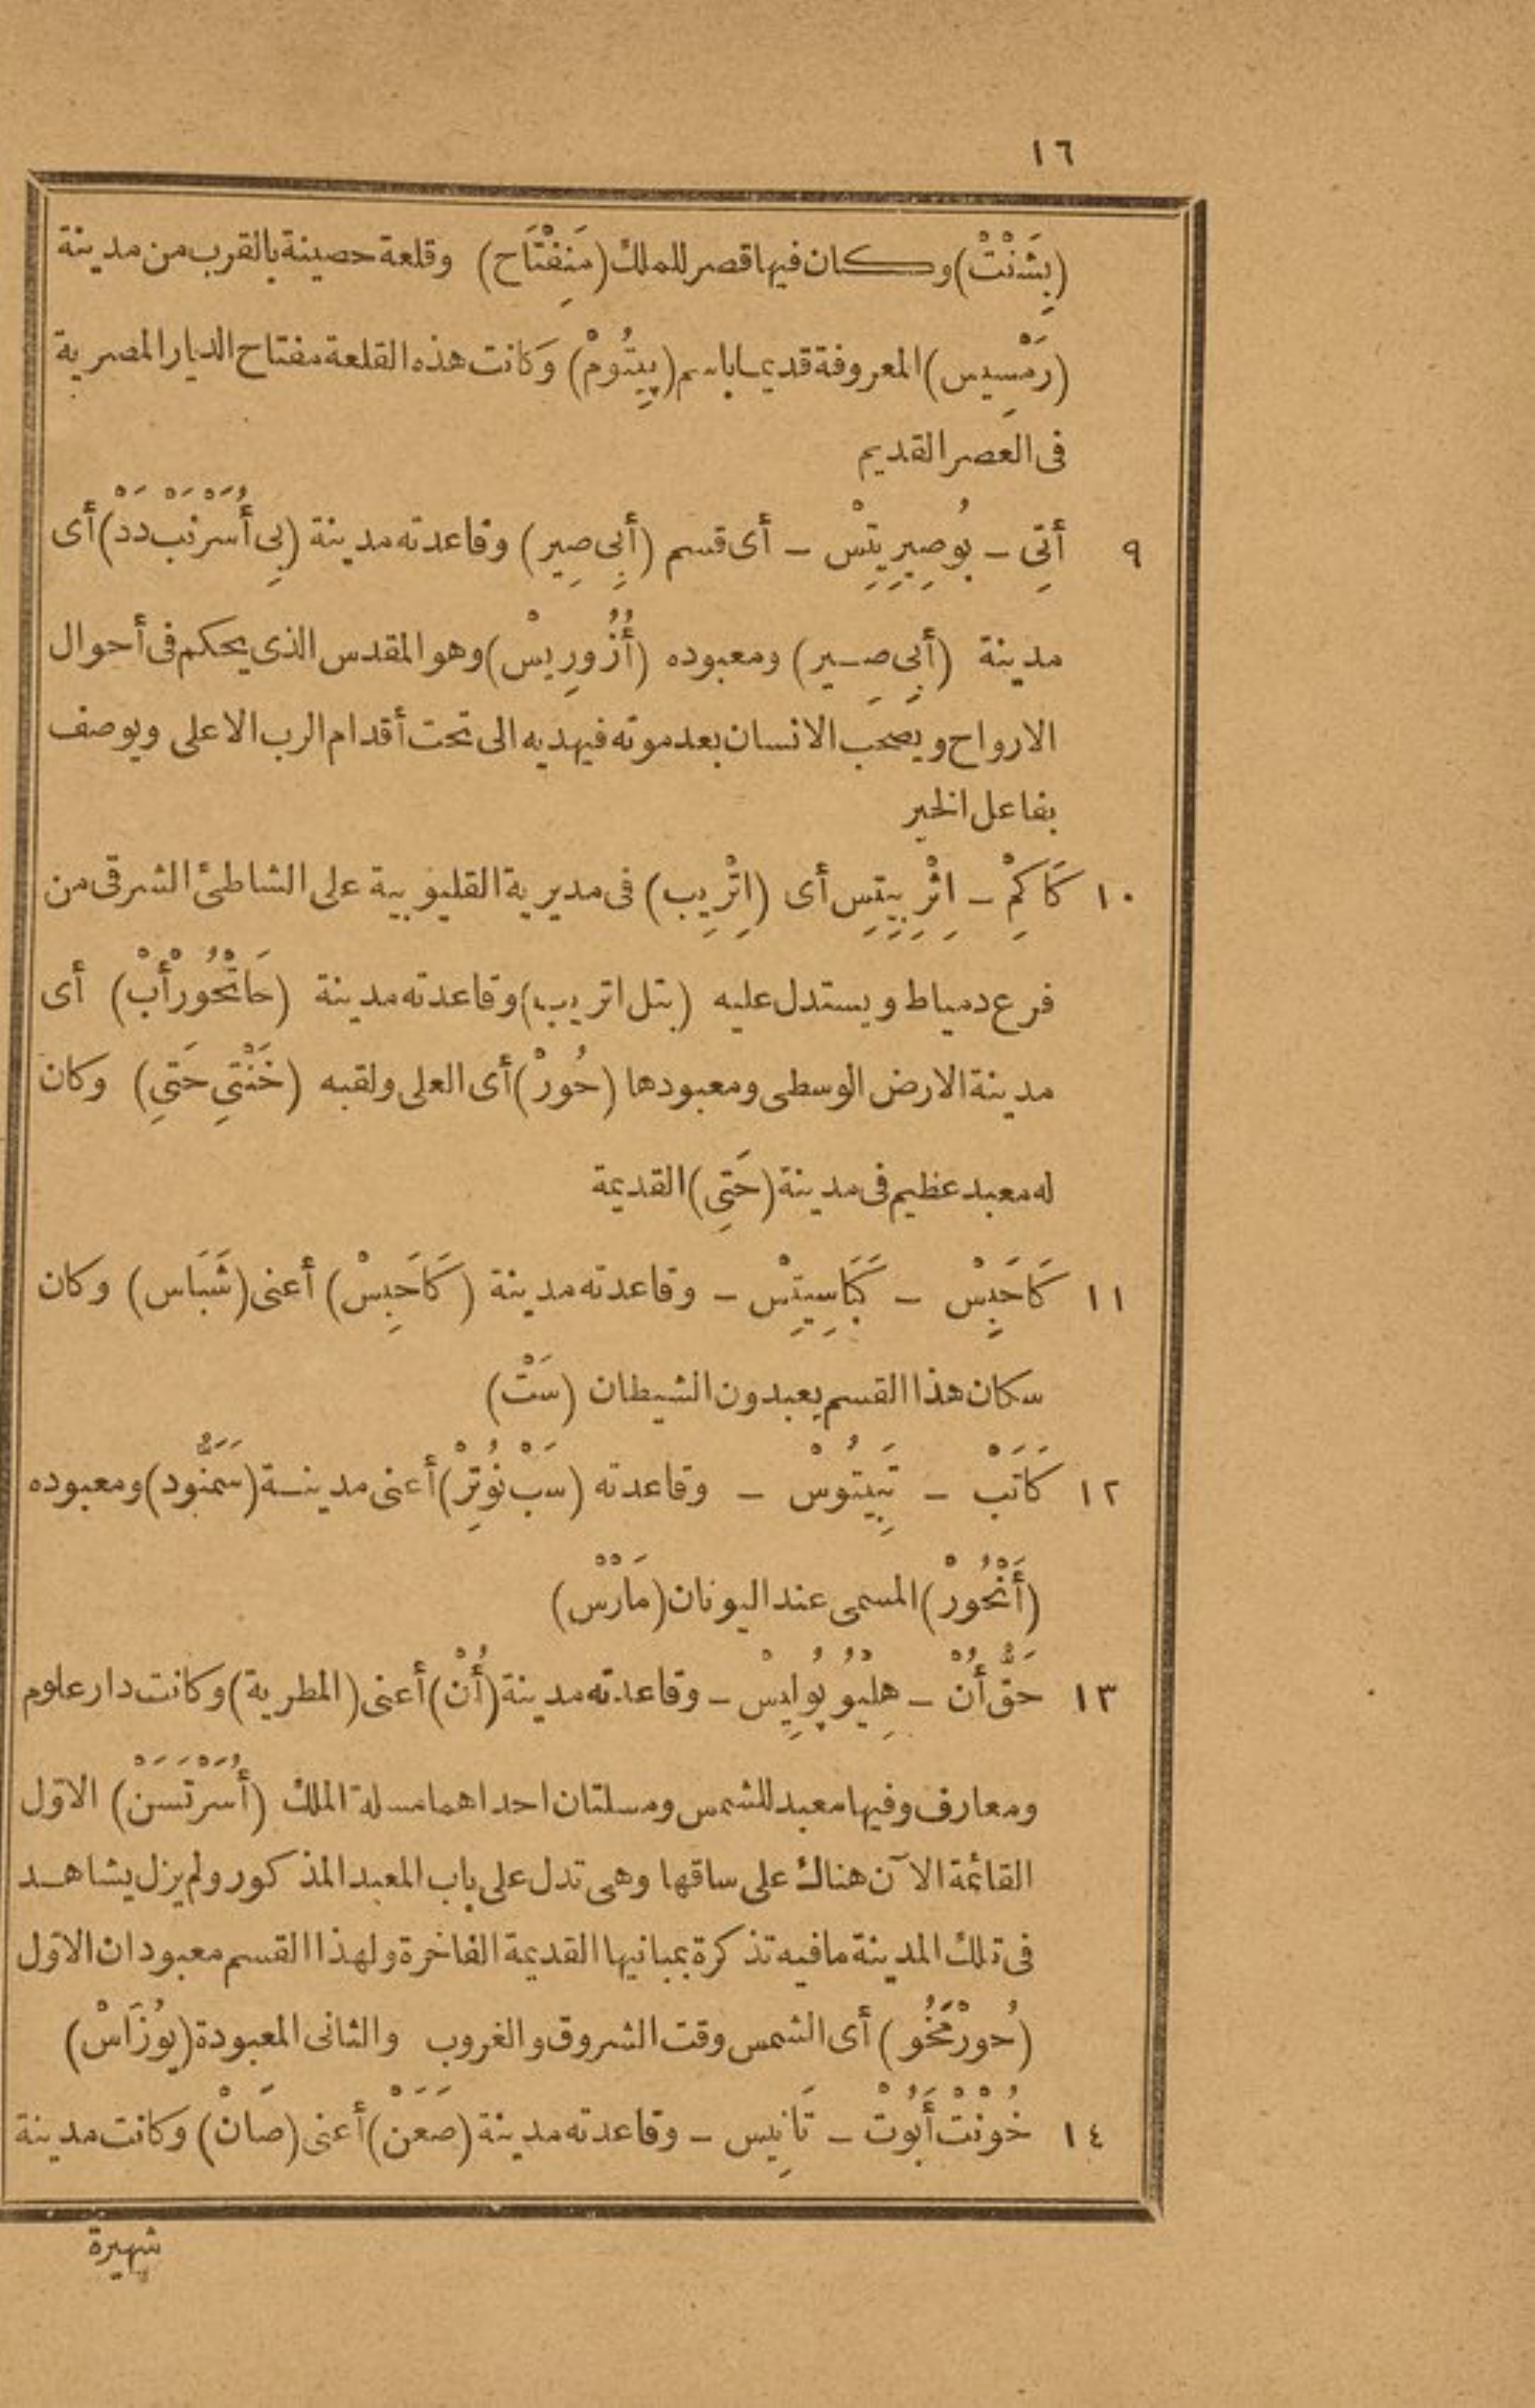 ١٦
(بِشَنْتْ) وكان فيها قصر للملك (مَنِفْتَاح) وقلعة حصينة بالقرب من مدينة
(رَمْسِيس) المعروفة قديما باسم (پِيتُومْ) وكانت هذه القلعة مفتاح الديار المصرية
فى العصر القديم
٩ أَتِى – بُوصِيرِيتِسْ – أى قسم (أَبِى صِير) وقاعدته مدينة (بِى أُسَرْنَبْ دَدْ) أى
مدينة (أَبِى صِير) ومعبوده (أُزُورِيسْ) وهو المقدس الذى يحكم فى أحوال
الارواح ويصحب الانسان بعد موته فيهديه الى تحت أقدام الرب الاعلى ويوصف
بفاعل الخير
١٠ كَاكِمْ – اِتْرِيبِيتِس أى (اِتْرِيب) فى مديرية القليوبية على الشاطئ الشرقى من
فرع دمياط ويستدل عليه (بتل اتريب) وقاعدته مدينة (حَاتْحُورْأَبْ) أى
مدينة الارض الوسطى ومعبودها (حُورْ) أى العلى ولقبه (خَنْتِى حَتِى) وكان
له معبد عظيم فى مدينة (حَتِى) القديمة
١١ كَاحَبِسْ – كَبَاسِيتِسْ – وقاعدته مدينة (كَاحَبِسْ) أعنى (شَبَاس) وكان
سكان هذا القسم يعبدون الشيطان (سَتْ)
١٢ كَاتَبْ – تَبِيتُوسْ – وقاعدته (سَبْ نُوتِرْ) أعنى مدينة (سَمَنُّود) ومعبوده
(أَنْحُورْ) المسمى عند اليونان (مَارْسْ)
١٣ حَقّ أُنْ – هِلِيُو پُولِيسْ – وقاعدته مدينة (أُنْ) أعنى (المطرية) وكانت دار علوم
ومعارف وفيها معبد للشمس ومسلتان احداهما مسلة الملك (أُسَرْتَسَنْ) الاوّل
القائمة الآن هناك على ساقها وهى تدل على باب المعبد المذكور ولم يزل يشاهد
فى تلك المدينة مافيه تذكرة بمبانيها القديمة الفاخرة ولهذا القسم معبودان الاوّل
(حُورْمَخُو) أى الشمس وقت الشروق والغروب والثانى المعبودة (يُوزَاسْ)
١٤ خُونْتْ أَبُوتْ – تَانِيس – وقاعدته مدينة (صَعَنْ) أعنى (صَانْ) وكانت مدينة
شهيرة